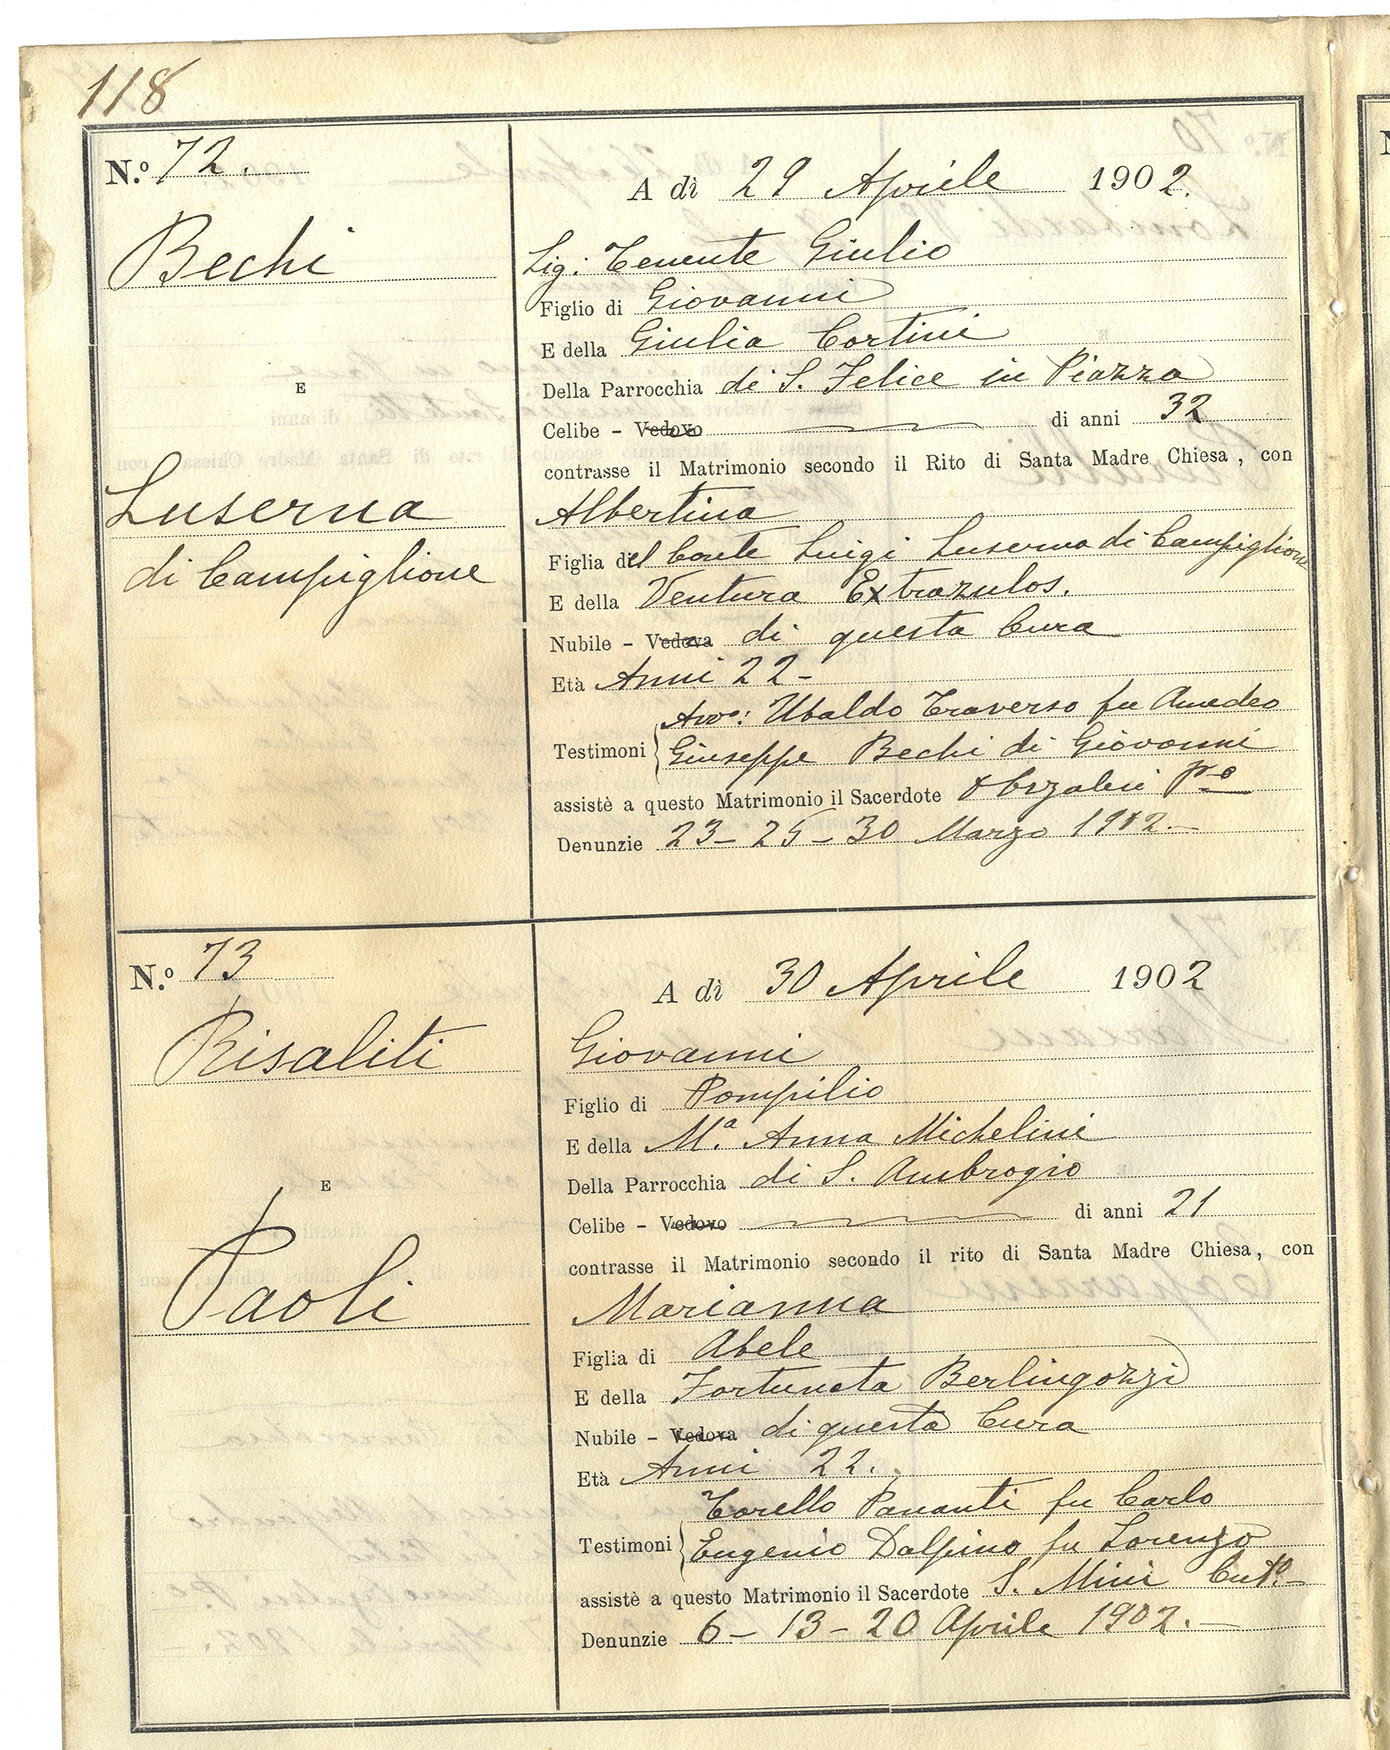 118
N.º 72.
Bechi
E
Luserna
di Campiglione
A dì 29 Aprile 1902.
Sig: Tenente Giulio
Figlio di Giovanni
E della Giulia Cortini
Della Parrocchia di S. Felice in Piazza
Celibe – Vedovo di anni 32
contrasse il Matrimonio secondo il Rito di Santa Madre Chiesa, con
Albertina
Figlia del Conte Luigi Luserna di Campiglione
E della Ventura Extrazulos.
Nubile – Vedova di questa Cura
Età Anni 22 –
Avvº: Ubaldo Traverso fu Amedeo
Testimoni Giuseppe Bechi di Giovanni
assistè a questo Matrimonio il Sacerdote
Denunzie 23 – 25 – 30 Marzo 1902. –
N.º 73
Risaliti
E
Paoli
A dì 30 Aprile 1902
Giovanni
Figlio di Pompilio
E della Mª. Anna Michelini
Della Parrocchia di S. Ambrogio
Celibe – Vedovo di anni 21
contrasse il Matrimonio secondo il rito di Santa Madre Chiesa, con
Marianna
Figlia di Abele
E della Fortunata Berlingozzi
Nubile – Vedova di questa Cura
Età Anni 22.
Torello Pananti fu Carlo
Testimoni Eugenio Dalpino fu Lorenzo
assistè a questo Matrimonio il Sacerdote S. Mini Cutº. –
Denunzie 6 – 13 – 20 Aprile 1902. –